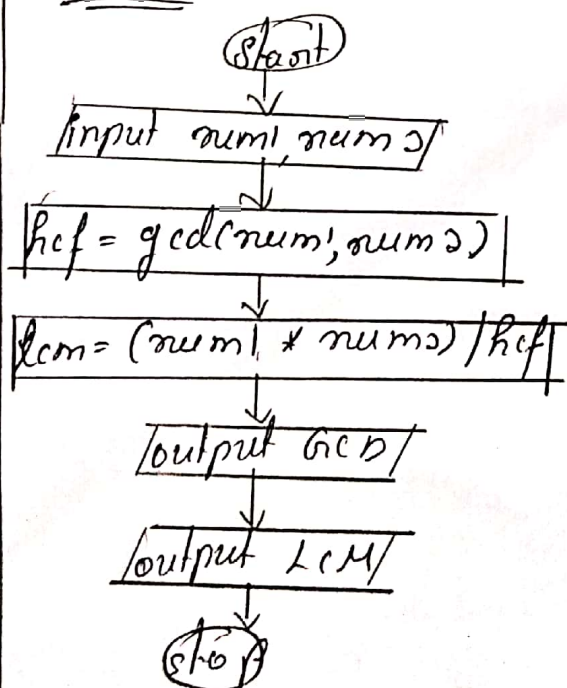 start
input num1, num2
hcf = gcd(num1, num2)
lcm = (num1 * num2) / hcf
output GCD
output LCM
stop